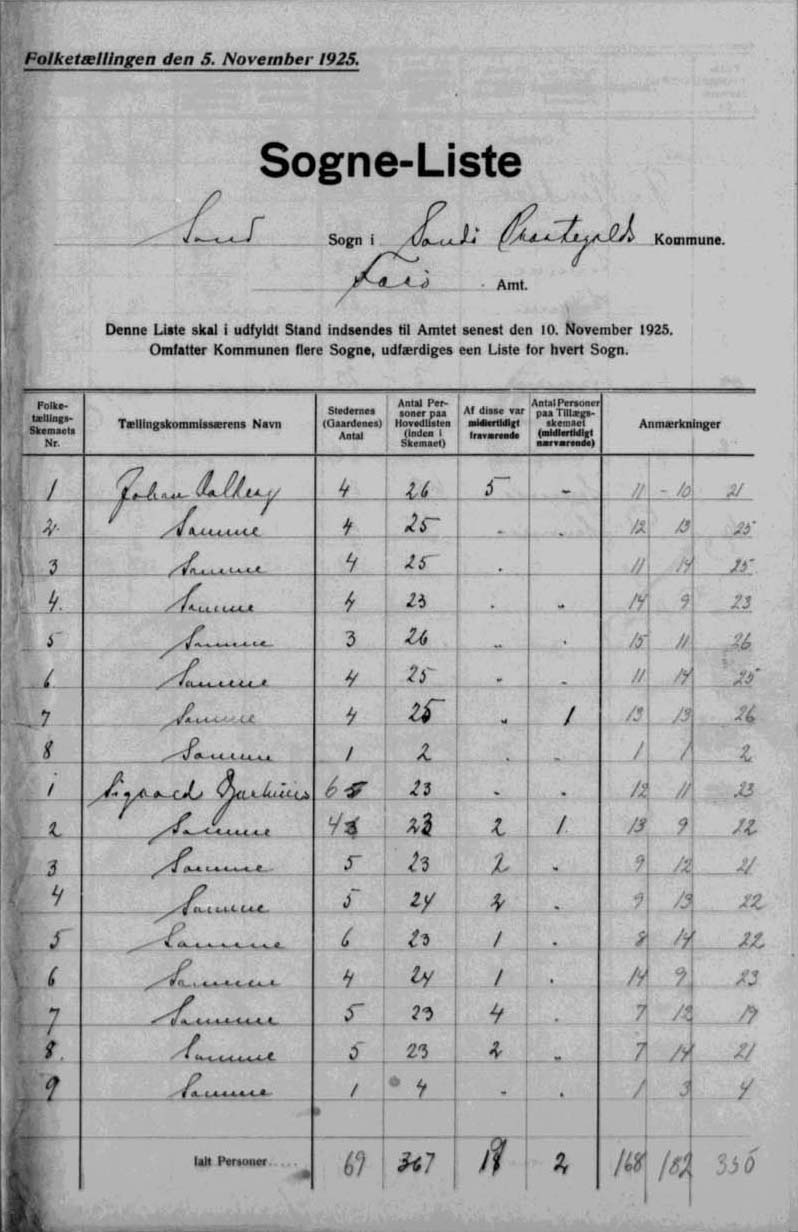 Folketællingen den 5. November 1925.
Sogne-Liste
Sand Sogn i Sands Præstegælds Kommune.
Færø Amt.
Denne Liste skal i udfyldt Stand indsendes til Amtet senest den 10. November 1925.
Omfatter Kommunen flere Sogne, udfærdiges een Liste for hvert Sogn.
Folketællings-Skemaets Nr. Tællingskommissærens Navn Stedernes (Gaardenes) Antal Antal Personer paa Hovedlisten (inden i Skemaet) Af disse var midlertidigt fraværende Antal Personer paa Tillægsskemaet (midlertidigt nærværende) Anmærkninger
1 Johan Dalberg 4 26 5 - 11 - 10 21
2 Samme 4 25 - . 12 13 25
3 Samme 4 25 . 11 14 25
4. Samme 4 23 . " 14 9 23
5 Samme 3 26 " . 15 11 26
6 Samme 4 25 " - 11 14 25
7 Samme 4 25 " 1 13 13 26
8 Samme 1 2 . . 1 1 2
1 Sigvard 6 23 - . 12 11 23
2 Samme 4 23 2 1 13 9 22
3 Samme 5 23 2 " 9 12 21
4 Samme 5 24 2 . 9 13 22
5 Samme 6 23 1 . 8 14 22
6 Samme 4 24 1 . 14 9 23
7 Samme 5 23 4 . 7 12 19
8. Samme 5 23 2 " 7 14 21
9 Samme 1 4 - . 1 3 4
Ialt Personer..... 69 367 19 2 168 182 350